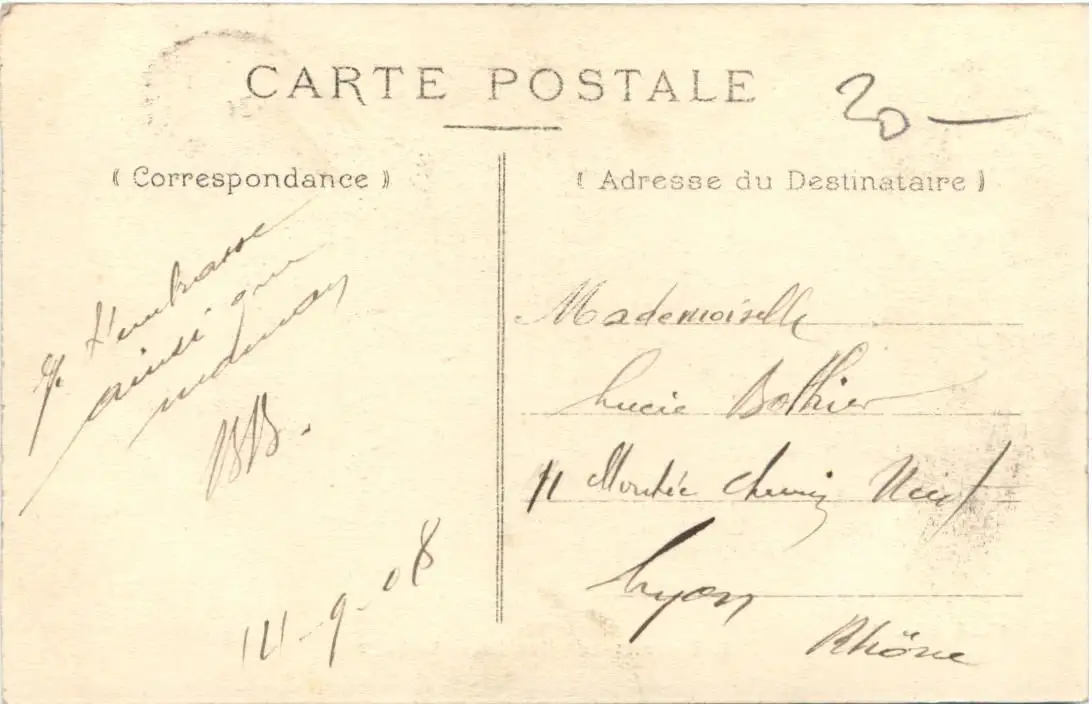 CARTE POSTALE
20 —
( Correspondance )
( Adresse du Destinataire )
t'embrasse
ainsi que
maman
BB.
14-9-08
Mademoiselle
Lucie Bothier
11 Montée chemin Neuf
Lyon
Rhône